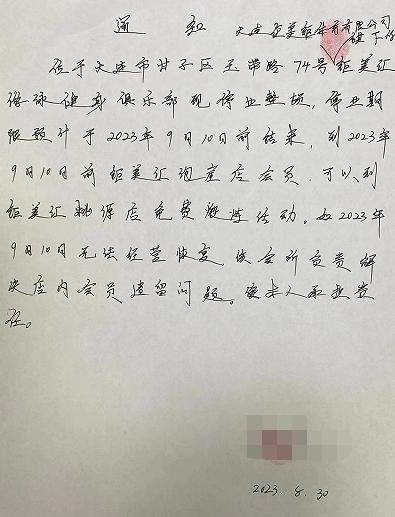 通知
大连钜美铭体育有限公司
旗下
位于大连市甘子区玉带路74号钜美汇
游泳健身俱乐部现停业整扬,停业期
限预计于2023年9月10日前结束,到2023年
9月10日前钜美汇泡崖店会员,可以到
钜美汇桃源店免费激炼活动。如2023年
9月10日无法经营恢复,该会所负责解
决店内会员遗留问题。法人承担责
任。
2023.8.30